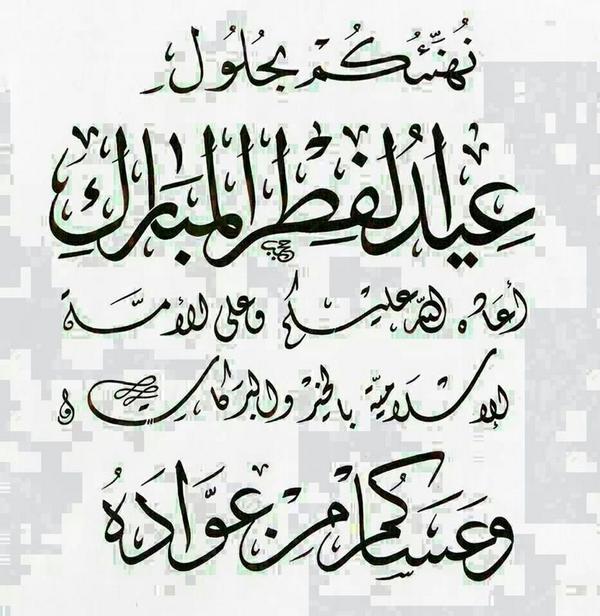 نُهَنِّئُكُمْ بِحُلُولِ
عِيدِ الفِطْرِ المُبَارَكِ
أعاده الله عليكم وعلى الأمّة
الإسلاميّة بالخير والبركات
وَعَسَاكُمْ مِنْ عُوَّادَهُ